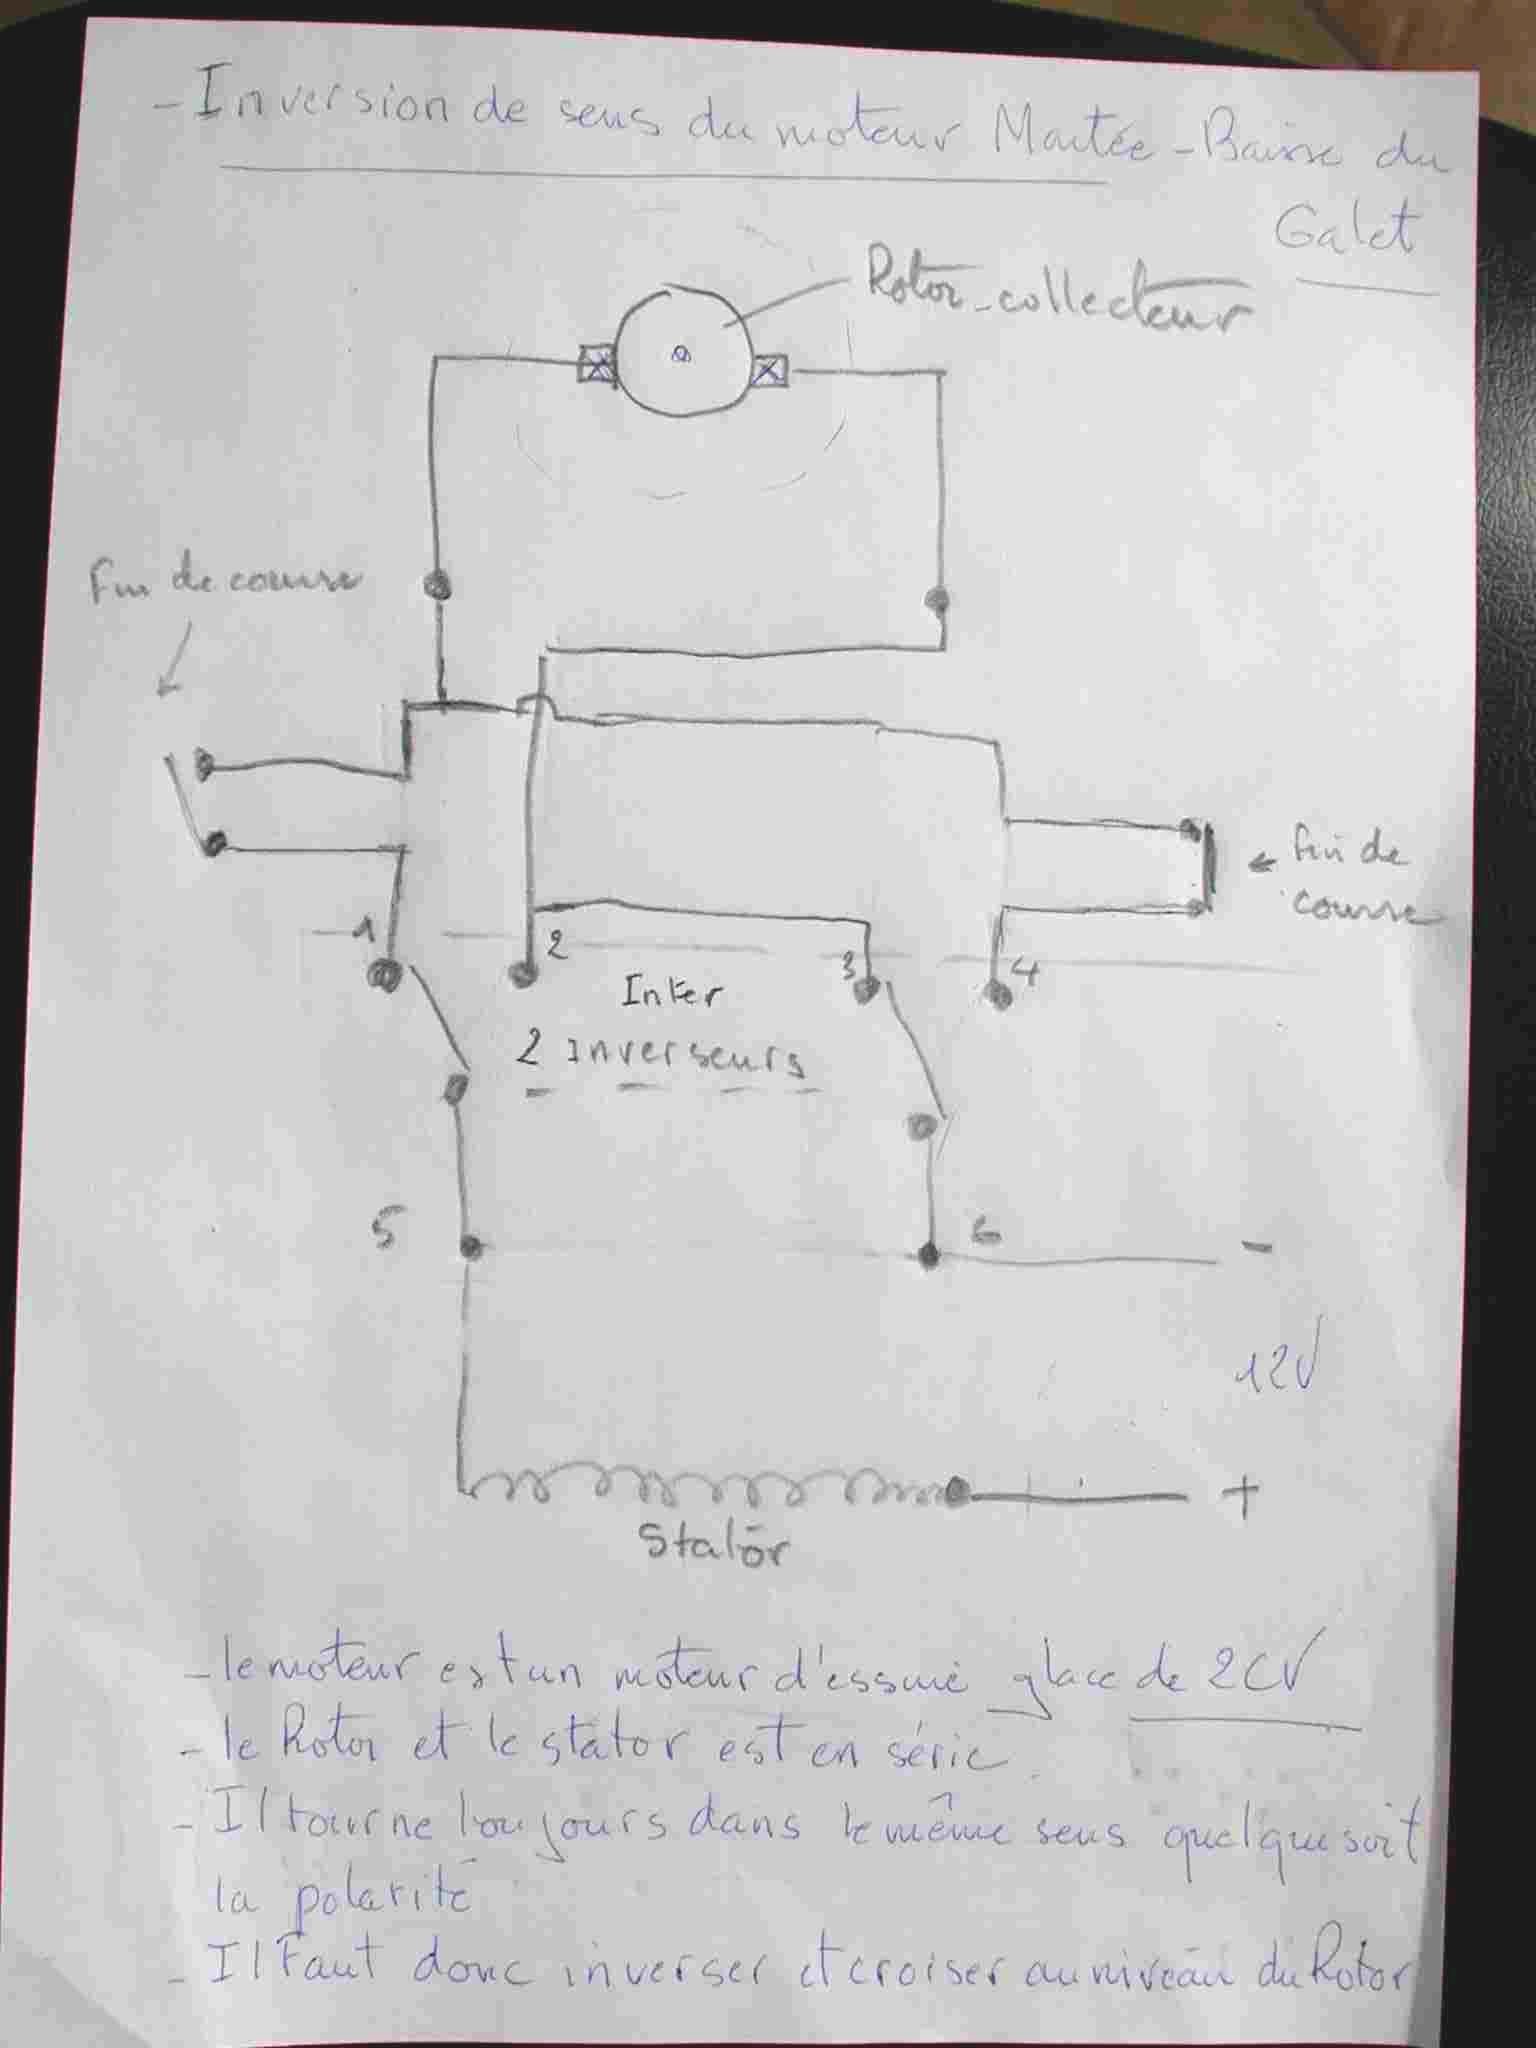 - Inversion de sens du moteur Montée - Baisse du
Galet
Rotor - collecteur
Fin de course
Fin de
course
1
2
3
4
Inter
2 Inverseurs
5
6
-
12V
+
Stator
- le moteur est un moteur d'essuie glace de 2CV
- le Rotor et le stator est en série.
- Il tourne toujours dans le même sens quelque soit
la polarité
- Il Faut donc inverser et croiser au niveau du Rotor